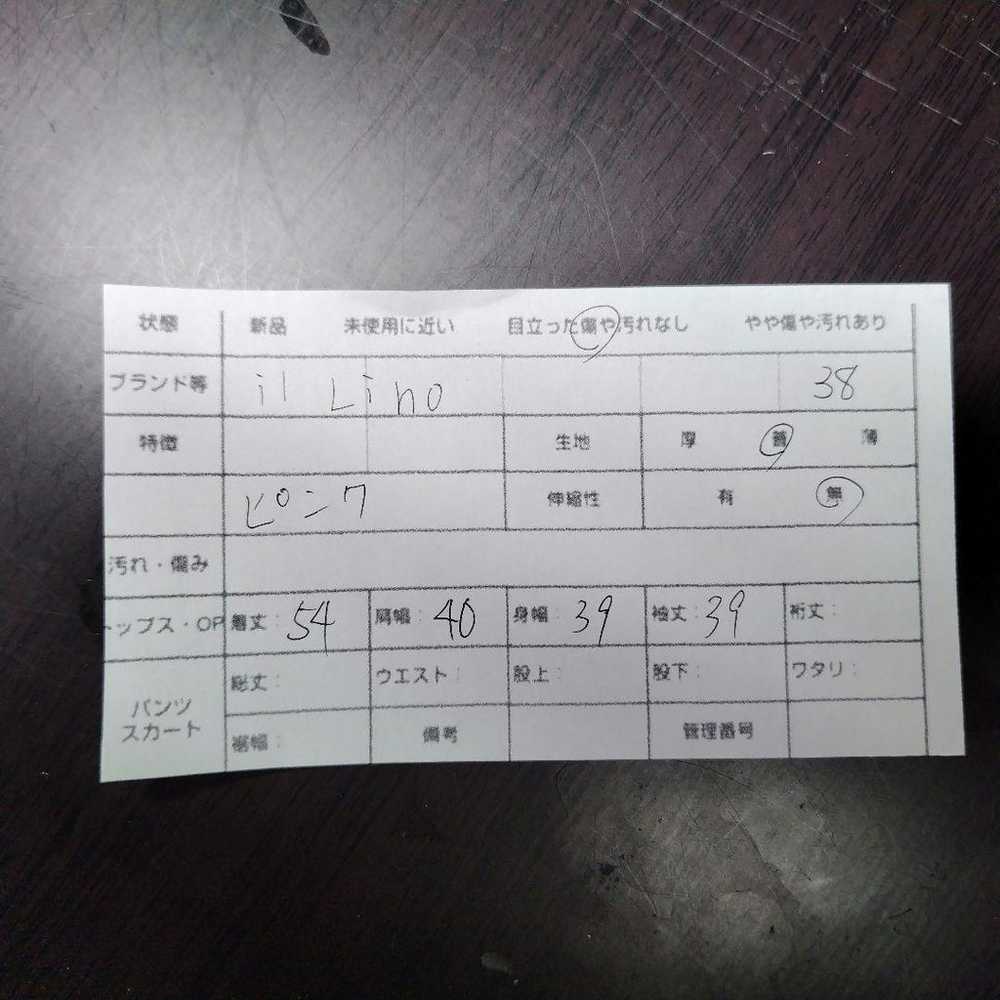 状態 新品 未使用に近い 目立った傷や汚れなし やや傷や汚れあり
ブランド等 il Lino 38
特徴 生地 厚 普 薄
ピンク 伸縮性 有 無
汚れ・傷み
トップス・OP 着丈: 54 肩幅: 40 身幅: 39 袖丈: 39 裄丈:
パンツ スカート 総丈: ウエスト: 股上: 股下: ワタリ:
裾幅: 備考 管理番号